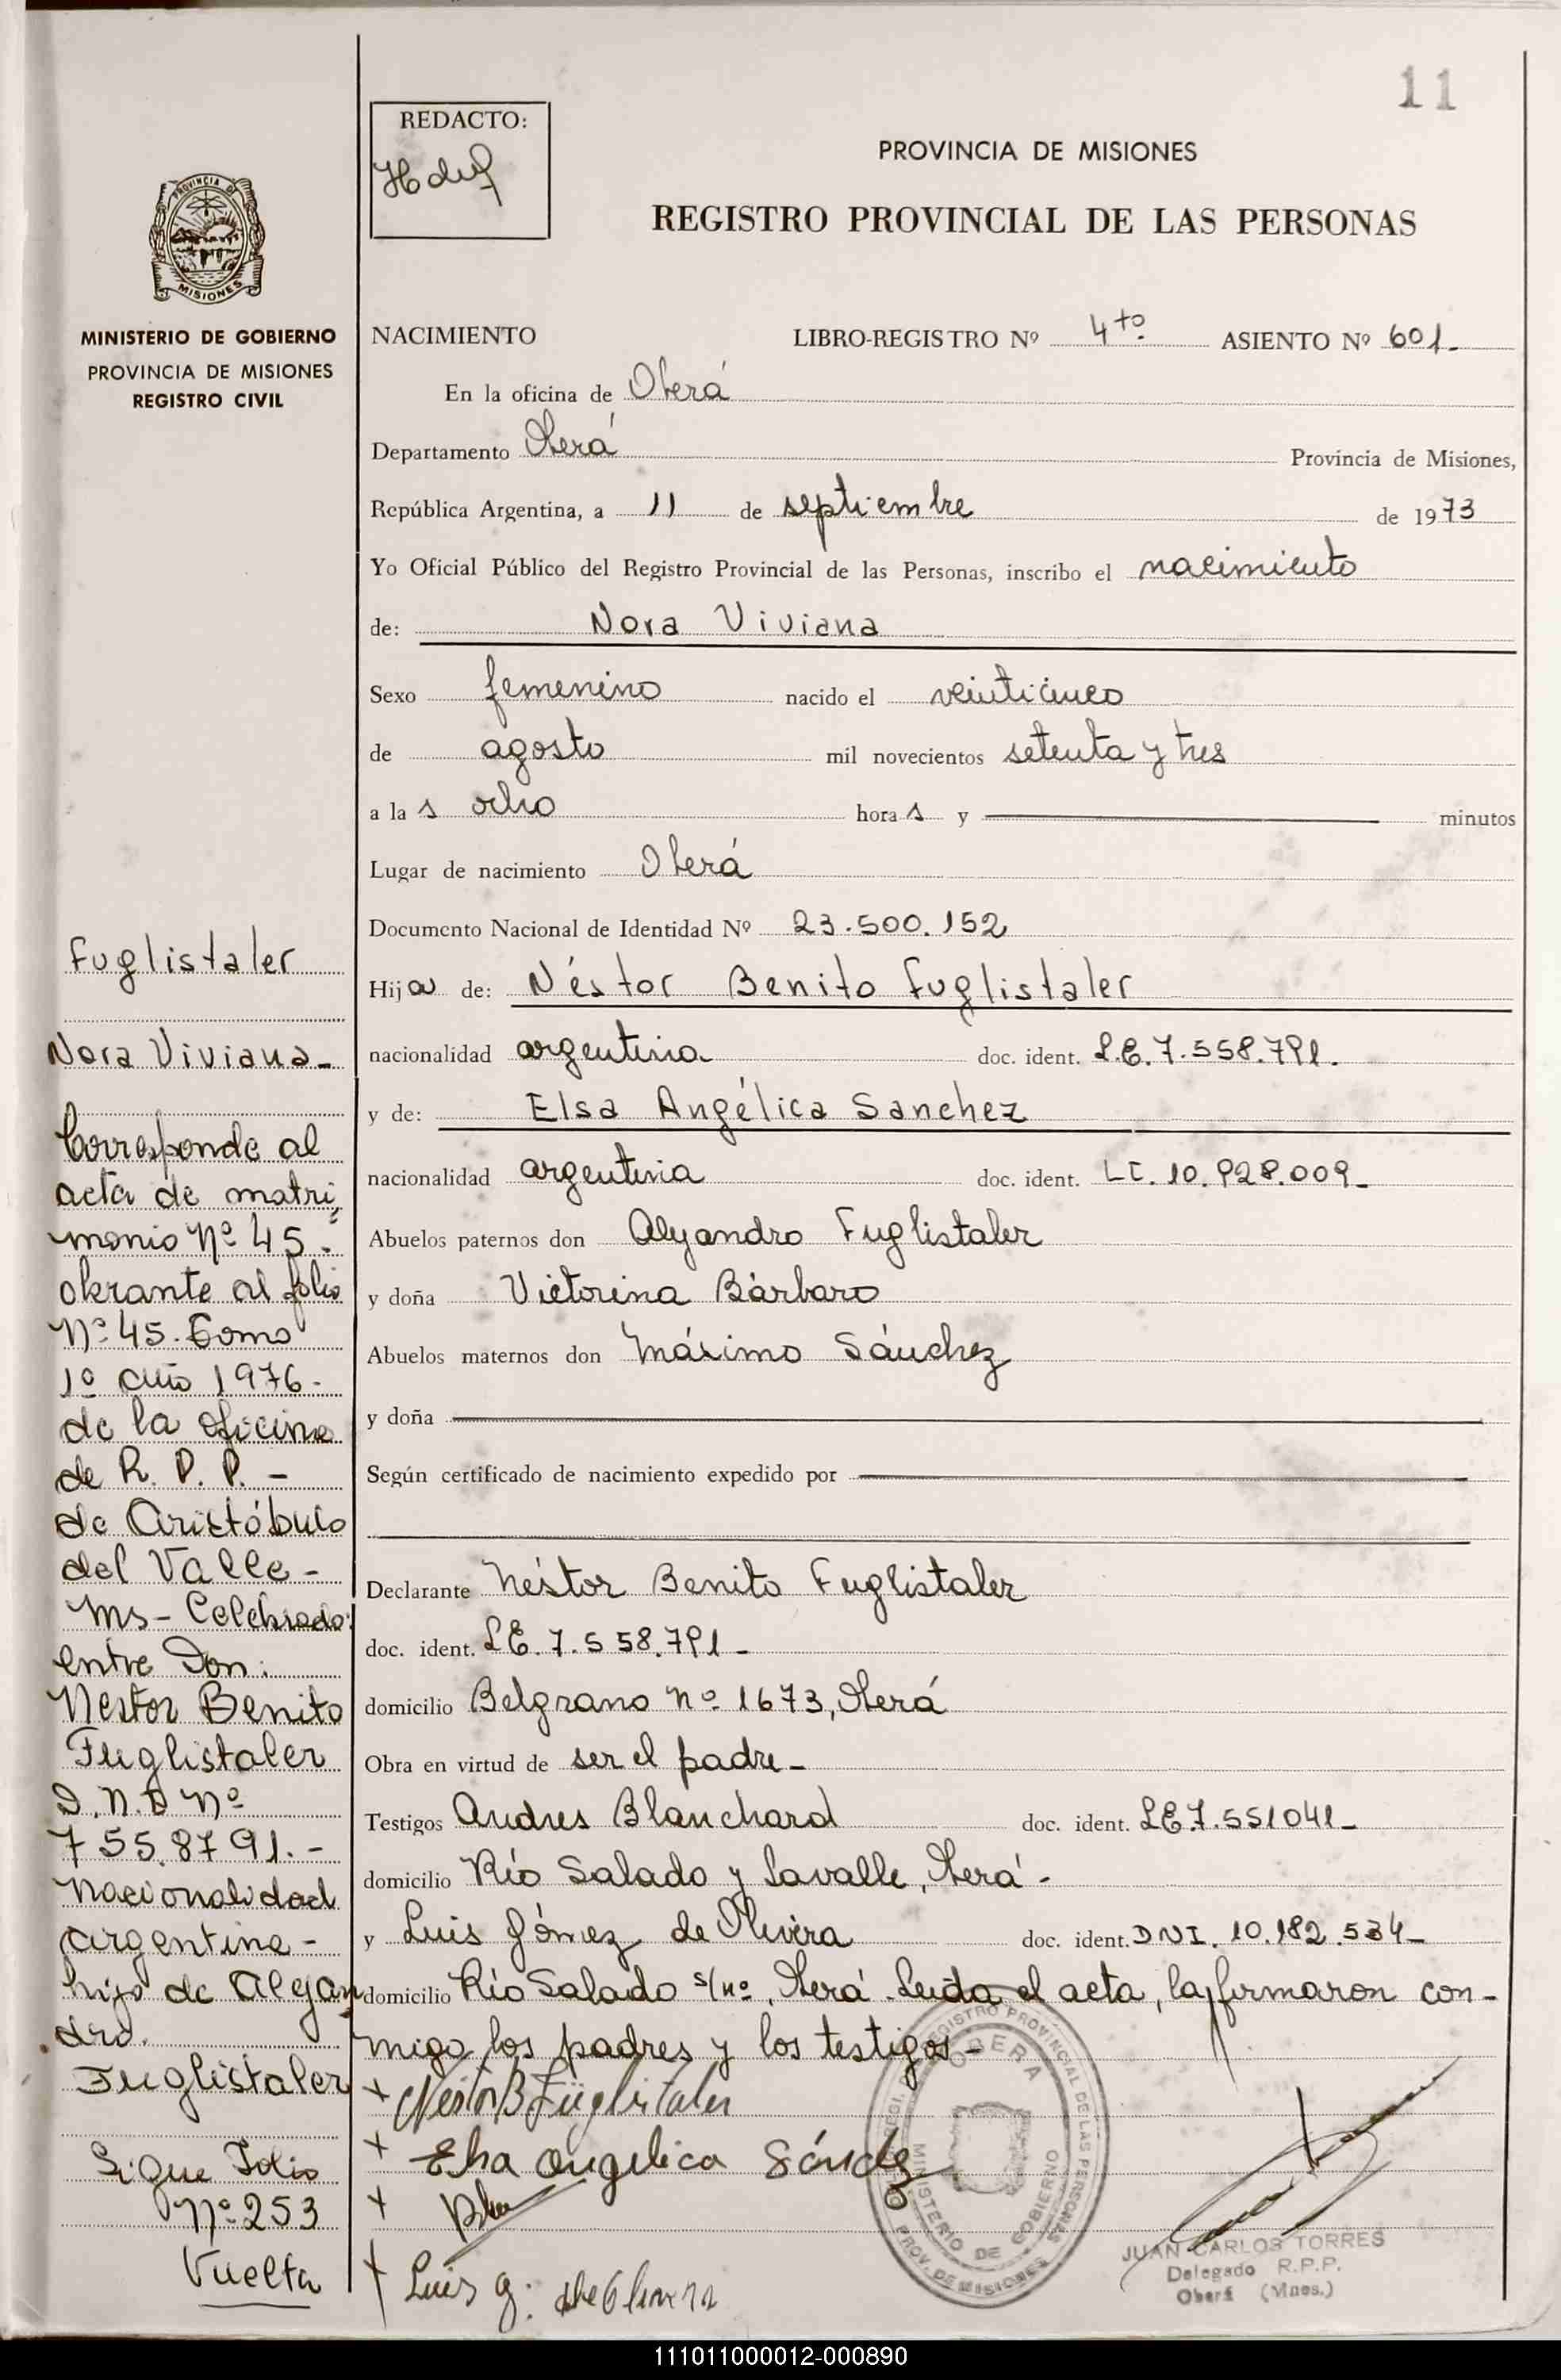 11
REDACTO:
PROVINCIA DE MISIONES
REGISTRO PROVINCIAL DE LAS PERSONAS
PROVINCIA DE
MISIONES
MINISTERIO DE GOBIERNO
PROVINCIA DE MISIONES
REGISTRO CIVIL
NACIMIENTO LIBRO-REGISTRO Nº 4to. ASIENTO Nº 601.
En la oficina de Oberá
Departamento Oberá Provincia de Misiones,
República Argentina, a 11 de septiembre de 1973
Yo Oficial Público del Registro Provincial de las Personas, inscribo el nacimiento
de: Nora Viviana
Sexo femenino nacido el veinticinco
de agosto mil novecientos setenta y tres
a las ocho horas y minutos
Lugar de nacimiento Oberá
Documento Nacional de Identidad Nº 23.500.152
Hija de: Néstor Benito Fuglistaler
nacionalidad argentina doc. ident. L.E. 7.558.791.
y de: Elsa Angélica Sanchez
nacionalidad argentina doc. ident. LC. 10.928.009-
Abuelos paternos don Alejandro Fuglistaler
y doña Victorina Bárbaro
Abuelos maternos don Máximo Sánchez
y doña
Según certificado de nacimiento expedido por
Declarante Néstor Benito Fuglistaler
doc. ident. LE. 7.558.791-
domicilio Belgrano nº 1673, Oberá
Obra en virtud de ser el padre-
Testigos Andres Blanchard doc. ident. LE 7.551041-
domicilio Río Salado y Lavalle, Oberá-
y Luis Gómez de Olivera doc. ident. DNI. 10.182.534-
domicilio Río Salado s/nº, Oberá. Leida el acta, la firmaron con-
migo los padres y los testigos-
Néstor B Fuglistaler
Elsa Angelica Sánchez
Luis g. de Olivera
REGISTRO PROVINCIAL DE LAS PERSONAS
OBERA
MINISTERIO DE GOBIERNO
PROV. DE MISIONES
JUAN CARLOS TORRES
Delegado R.P.P.
Oberá (Mnes.)
Fuglistaler
Nora Viviana-
Corresponde al
acta de matri
monio Nº 45.
obrante al folio
Nº 45. Tomo
1º año 1976-
de la oficina
de R. P. P. -
de Aristóbulo
del Valle-
Ms- Celebrado:
entre Don:
Nestor Benito
Fuglistaler
D.N.I Nº
7 55.87 91.-
Nacionalidad
argentina-
hijo de Alejan
dro.
Fuglistaler
Sigue Folio
Nº 253
Vuelta
111011000012-000890